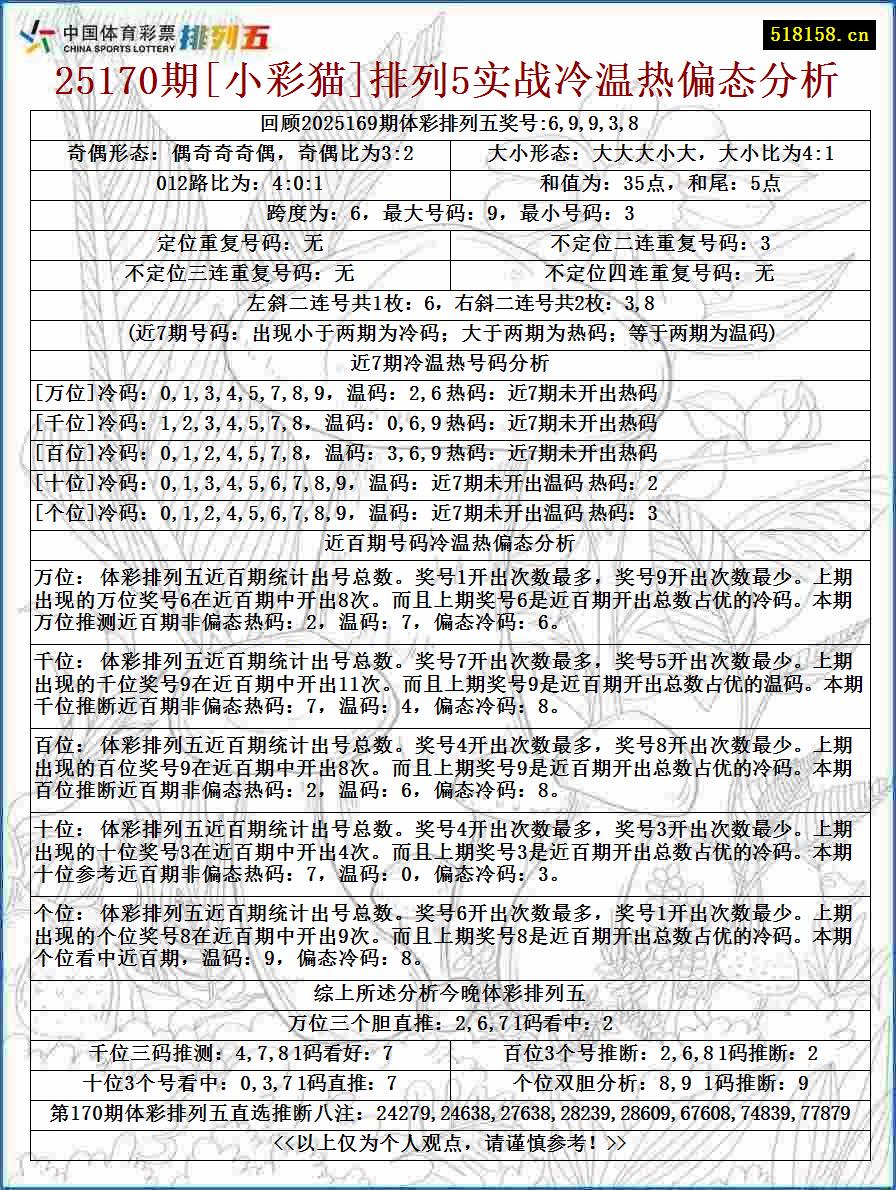 中国体育彩票 排列五
CHINA SPORTS LOTTERY
518158.cn
25170期[小彩猫]排列5实战冷温热偏态分析
回顾2025169期体彩排列五奖号:6,9,9,3,8
奇偶形态: 偶奇奇奇偶, 奇偶比为3:2
大小形态: 大大大小大, 大小比为4:1
012路比为: 4:0:1
和值为: 35点, 和尾: 5点
跨度为: 6, 最大号码: 9, 最小号码: 3
定位重复号码: 无
不定位二连重复号码: 3
不定位三连重复号码: 无
不定位四连重复号码: 无
左斜二连号共1枚: 6, 右斜二连号共2枚: 3,8
(近7期号码: 出现小于两期为冷码; 大于两期为热码; 等于两期为温码)
近7期冷温热号码分析
[万位]冷码: 0,1,3,4,5,7,8,9, 温码: 2,6 热码: 近7期未开出热码
[千位]冷码: 1,2,3,4,5,7,8, 温码: 0,6,9 热码: 近7期未开出热码
[百位]冷码: 0,1,2,4,5,7,8, 温码: 3,6,9 热码: 近7期未开出热码
[十位]冷码: 0,1,3,4,5,6,7,8,9, 温码: 近7期未开出温码 热码: 2
[个位]冷码: 0,1,2,4,5,6,7,8,9, 温码: 近7期未开出温码 热码: 3
近百期号码冷温热偏态分析
万位: 体彩排列五近百期统计出号总数。奖号1开出次数最多, 奖号9开出次数最少。上期
出现的万位奖号6在近百期中开出8次。而且上期奖号6是近百期开出总数占优的冷码。本期
万位推测近百期非偏态热码: 2, 温码: 7, 偏态冷码: 6。
千位: 体彩排列五近百期统计出号总数。奖号7开出次数最多, 奖号5开出次数最少。上期
出现的千位奖号9在近百期中开出11次。而且上期奖号9是近百期开出总数占优的温码。本期
千位推断近百期非偏态热码: 7, 温码: 4, 偏态冷码: 8。
百位: 体彩排列五近百期统计出号总数。奖号4开出次数最多, 奖号8开出次数最少。上期
出现的百位奖号9在近百期中开出8次。而且上期奖号9是近百期开出总数占优的冷码。本期
百位推断近百期非偏态热码: 2, 温码: 6, 偏态冷码: 8。
十位: 体彩排列五近百期统计出号总数。奖号4开出次数最多, 奖号3开出次数最少。上期
出现的十位奖号3在近百期中开出4次。而且上期奖号3是近百期开出总数占优的冷码。本期
十位参考近百期非偏态热码: 7, 温码: 0, 偏态冷码: 3。
个位: 体彩排列五近百期统计出号总数。奖号6开出次数最多, 奖号1开出次数最少。上期
出现的个位奖号8在近百期中开出9次。而且上期奖号8是近百期开出总数占优的冷码。本期
个位看中近百期, 温码: 9, 偏态冷码: 8。
综上所述分析今晚体彩排列五
万位三个胆直推: 2,6,7 1码看中: 2
千位三码推测: 4,7,8 1码看好: 7
百位3个号推断: 2,6,8 1码推断: 2
十位3个号看中: 0,3,7 1码直推: 7
个位双胆分析: 8,9 1码推断: 9
第170期体彩排列五直选推断八注: 24279,24638,27638,28239,28609,67608,74839,77879
<<以上仅为个人观点, 请谨慎参考! >>